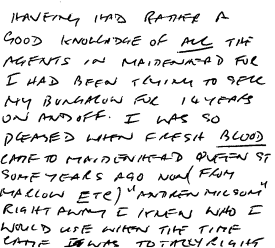 HAVEING HAD RATHER A
GOOD KNOWLADGE OF ALL THE
AGENTS IN MAIDENHEAD FOR
I HAD BEEN TRYING TO SELL
MY BUNGALOW FOR 14 YEARS
ON AND OFF. I WAS SO
PLEASED WHEN FRESH BLOOD
CAME TO MAIDENHEAD QUEEN ST
SOME YEARS AGO NOW (FROM
MARLOW ETC) "ANDREW MILSOM"
RIGHT AWAY I KNEW WHO I
WOULD USE WHEN THE TIME
CAME IT WAS TOTALLY RIGHT